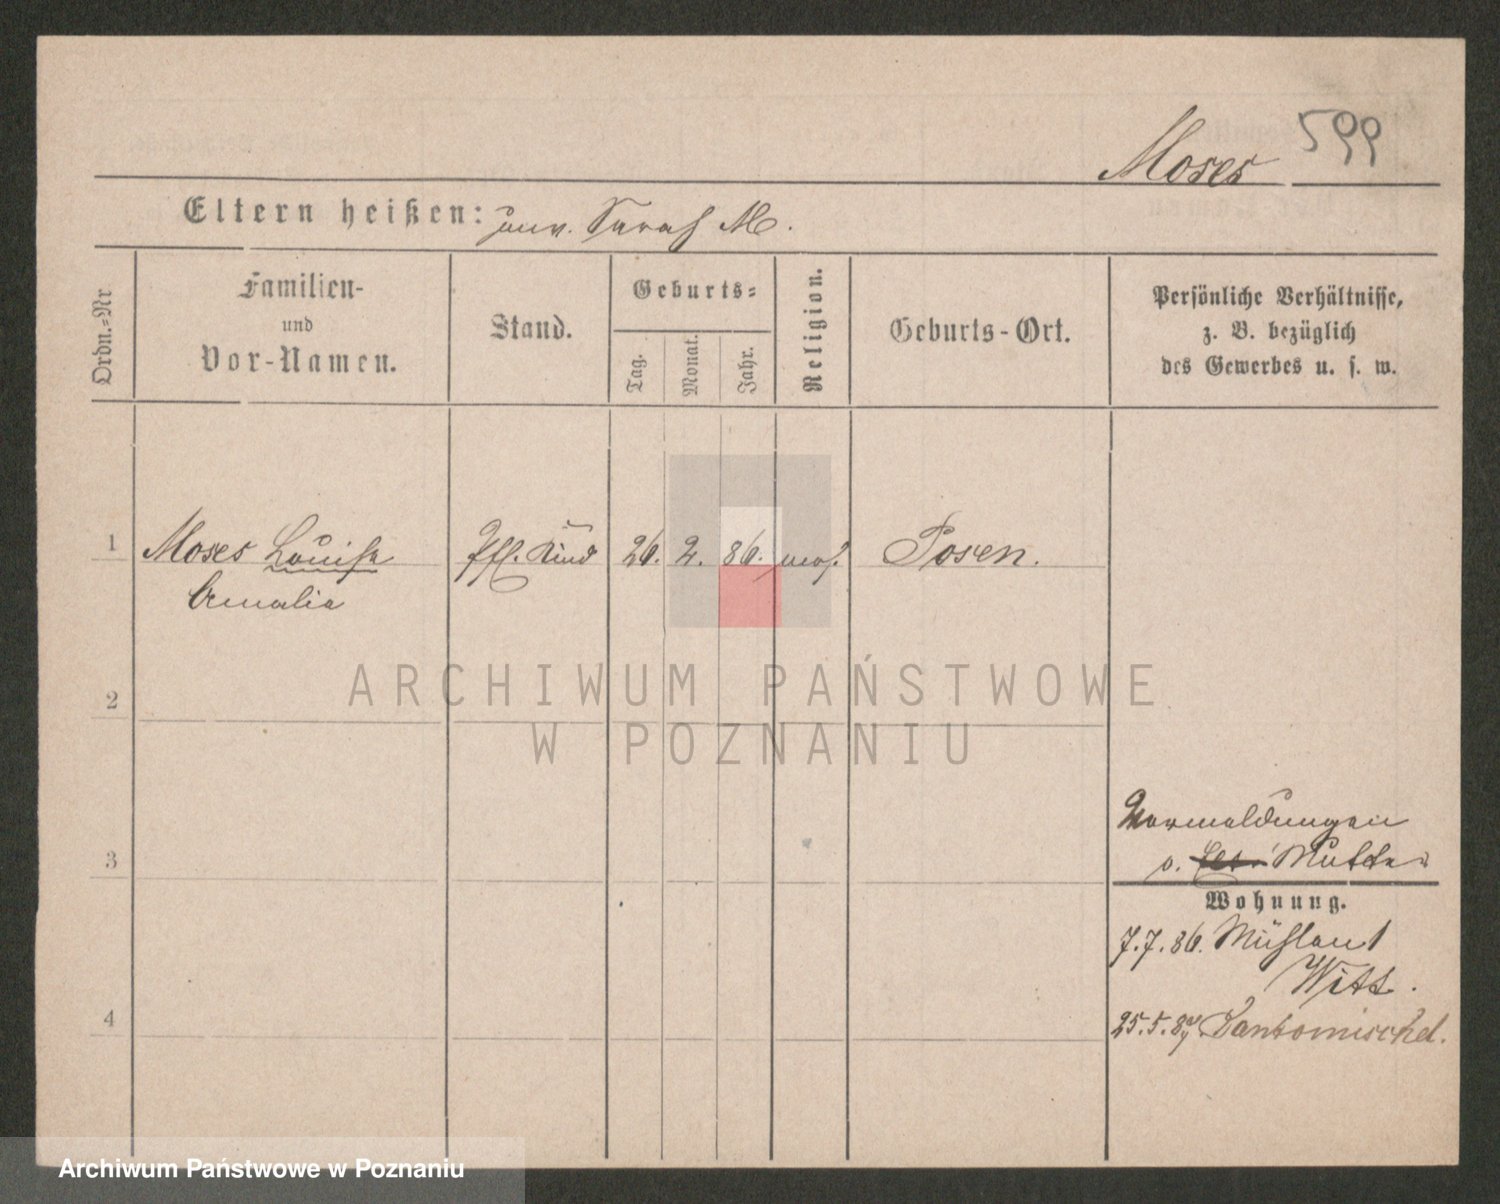 Moses 599
Eltern heißen: unv. Sarah M.
Ordn.=Nr
Familien-
und
Vor-Namen.
Stand.
Geburts=
Tag.
Monat.
Jahr.
Religion.
Geburts-Ort.
Persönliche Verhältnisse,
z. B. bezüglich
des Gewerbes u. s. w.
1 Moses Louise Pfl. Kind 26. 2. 86. mos. Posen.
Amalia
2
3
4
Vormeldungen
v. Mutter
Wohnung.
7.7.86. Mühlau
Witt.
25.5.89
ARCHIWUM PAŃSTWOWE
W POZNANIU
Archiwum Państwowe w Poznaniu